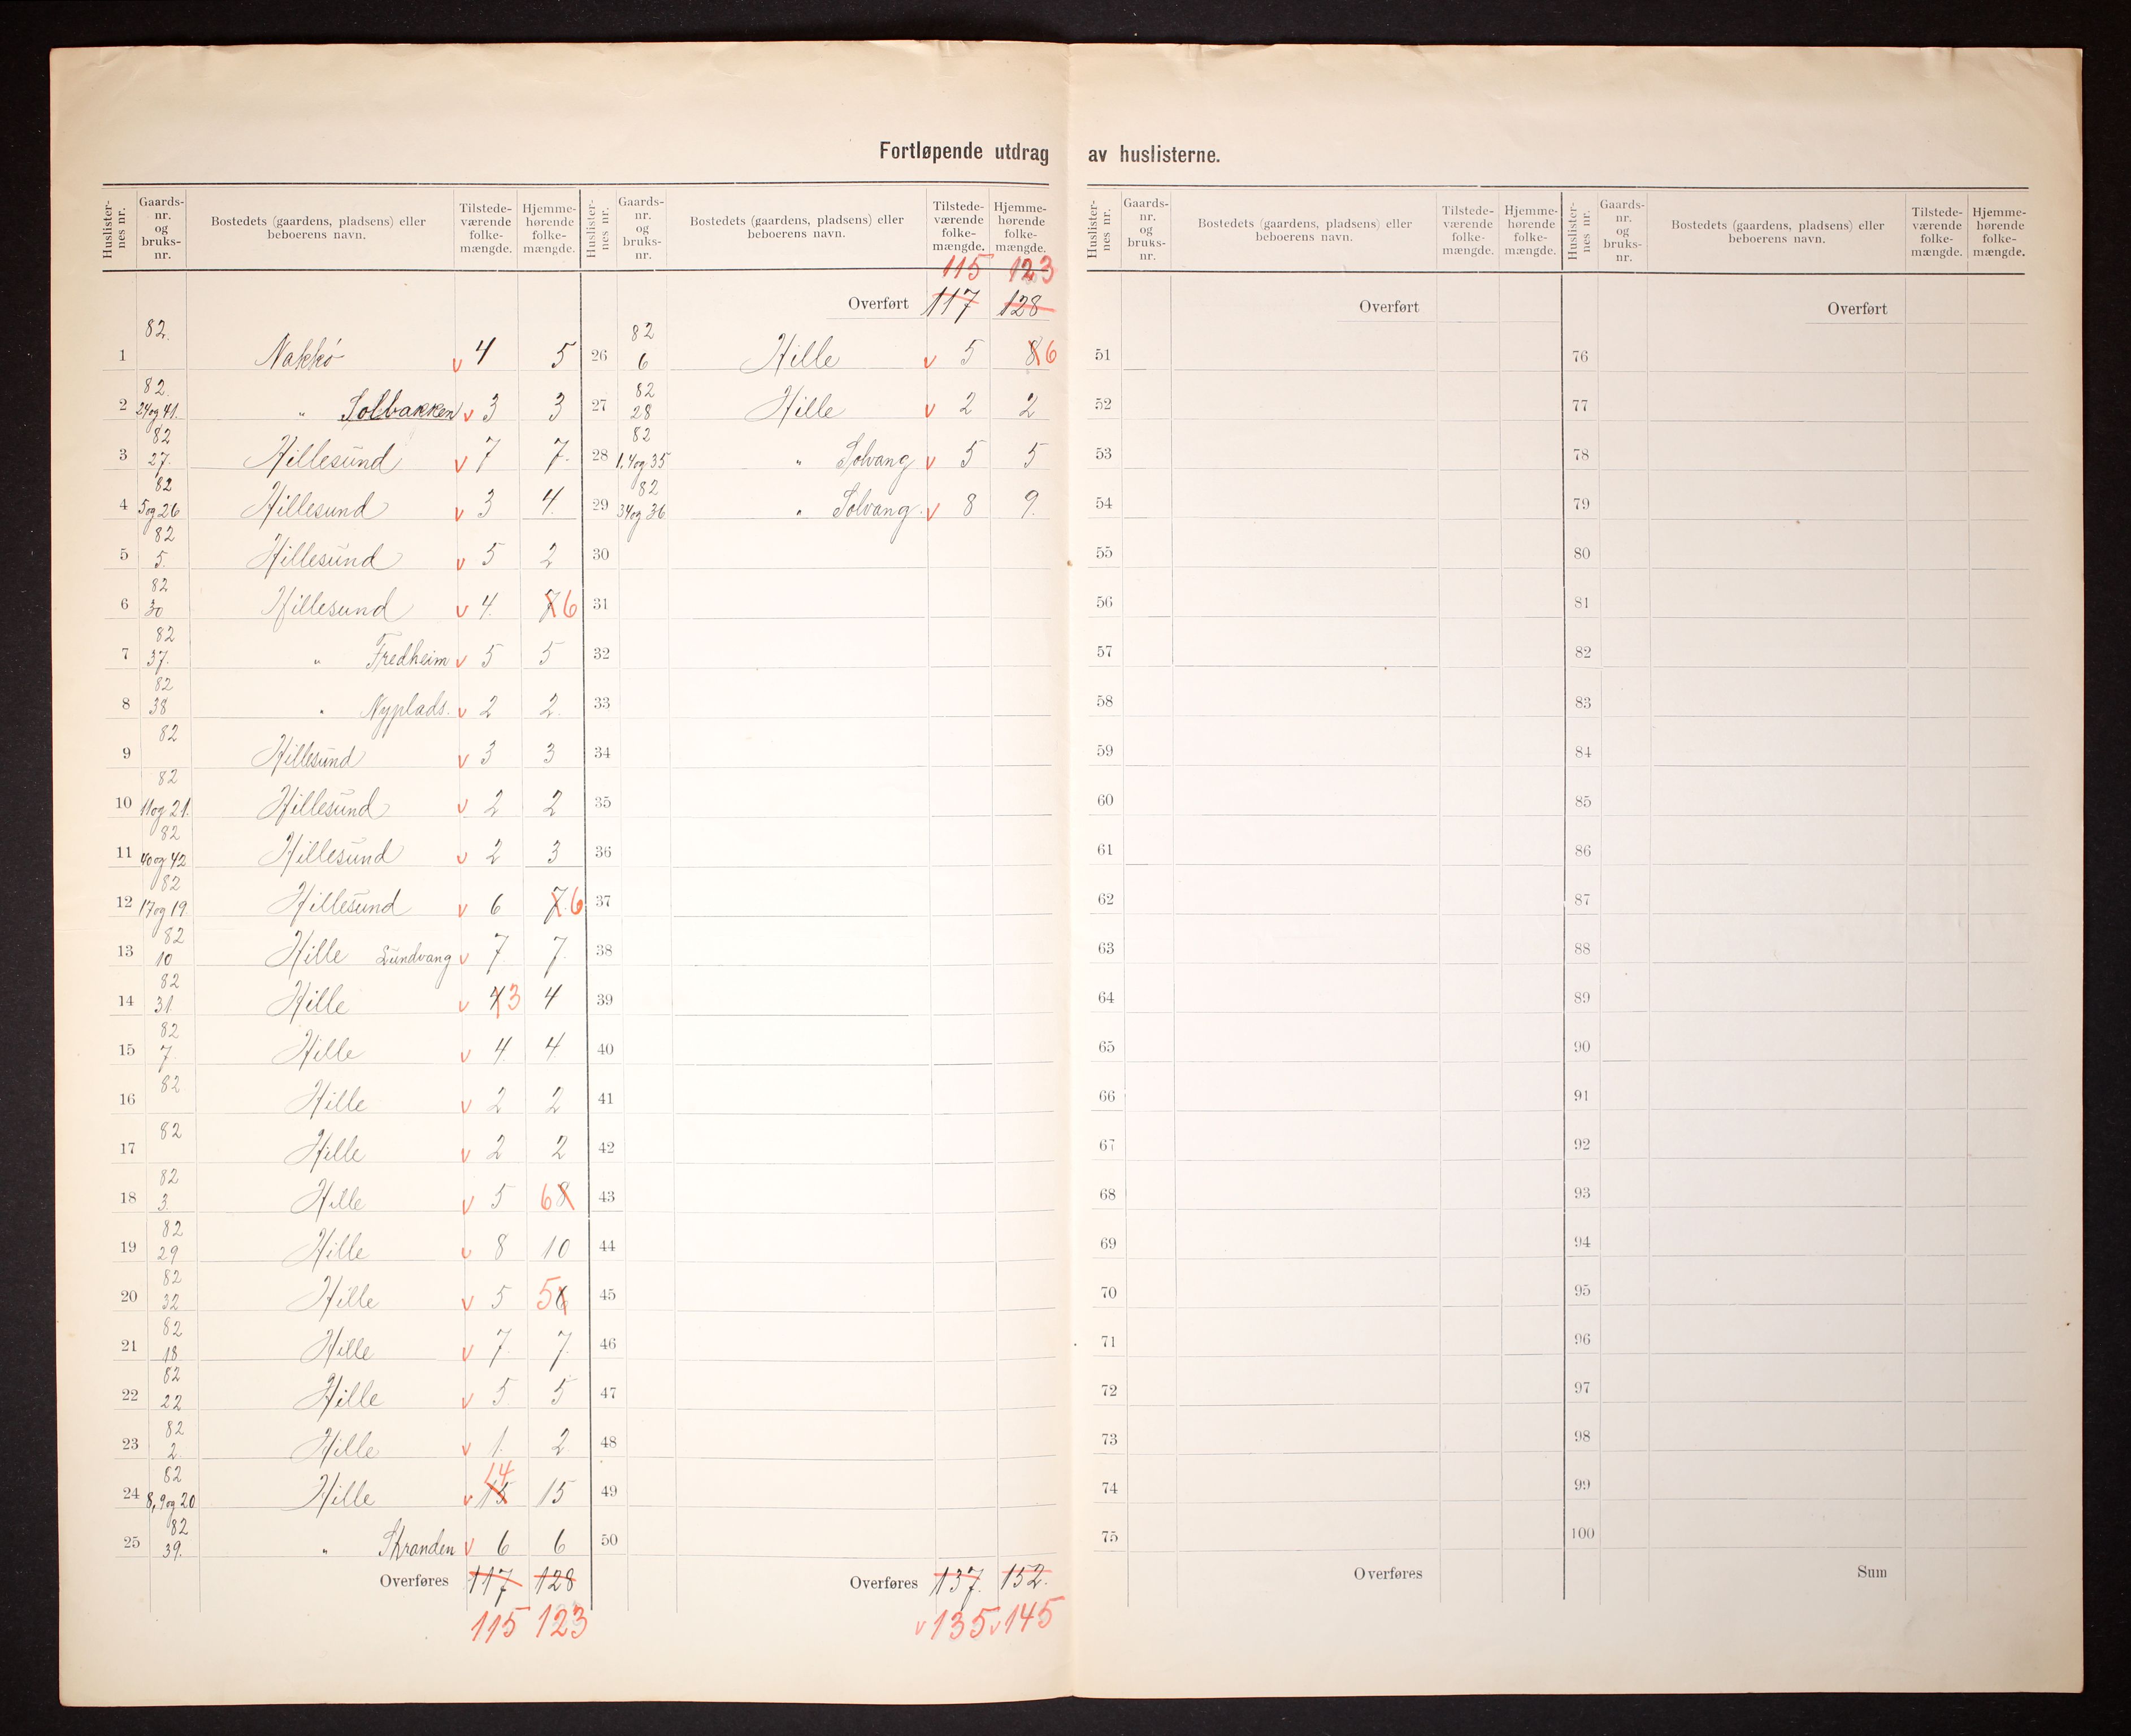 Fortløpende utdrag av huslisterne.
Huslister-nes nr. Gaards-nr. og bruks-nr. Bostedets (gaardens, pladsens) eller beboerens navn. Tilstede-værende folke-mængde. Hjemme-hørende folke-mængde.
1 82. Nakkø v 4 5
2 82. 24 og 41. " Solbakken v 3 3
3 82 27. Hillesund v 7 7.
4 82 5 og 26 Hillesund v 3 4.
5 82 5. Hillesund v 5 2
6 82 30 Hillesund v 4. 7 6
7 82 37. " Fredheim v 5 5
8 82 38 " Nyplads. v 2 2.
9 82 Hillesund v 3 3
10 82 11 og 21. Hillesund v 2 2
11 82 40 og 42 Hillesund v 2 3
12 82 17 og 19. Hillesund v 6 7. 6
13 82 10 Hille Sundvang v 7 7.
14 82 31 Hille v 4 3 4
15 82 7. Hille v 4. 4
16 82 Hille v 2 2
17 82 Hille v 2 2
18 82 3. Hille v 5 6 8
19 82 29 Hille v 8 10
20 82 32 Hille v 5 5 6
21 82 18 Hille v 7. 7.
22 82 22 Hille v 5. 5
23 82 2 Hille v 1. 2.
24 82 8, 9 og 20 Hille v 15 14 15
25 82 39. " Skranden v 6 6
Overføres 117 128
115 123
Huslister-nes nr. Gaards-nr. og bruks-nr. Bostedets (gaardens, pladsens) eller beboerens navn. Tilstede-værende folke-mængde. Hjemme-hørende folke-mængde.
115 123
Overført 117 128
26 82 6 Hille v 5 8 6
27 82 28 Hille v 2 2
28 82 1, 4 og 35 " Solvang v 5 5
29 82 34 og 36 " Solvang. v 8 9.
30
31
32
33
34
35
36
37
38
39
40
41
42
43
44
45
46
47
48
49
50
Overføres 137. 152.
v 135 v 145
Huslister-nes nr. Gaards-nr. og bruks-nr. Bostedets (gaardens, pladsens) eller beboerens navn. Tilstede-værende folke-mængde. Hjemme-hørende folke-mængde.
Overført
51
52
53
54
55
56
57
58
59
60
61
62
63
64
65
66
67
68
69
70
71
72
73
74
75
Overføres
Huslister-nes nr. Gaards-nr. og bruks-nr. Bostedets (gaardens, pladsens) eller beboerens navn. Tilstede-værende folke-mængde. Hjemme-hørende folke-mængde.
Overført
76
77
78
79
80
81
82
83
84
85
86
87
88
89
90
91
92
93
94
95
96
97
98
99
100
Sum